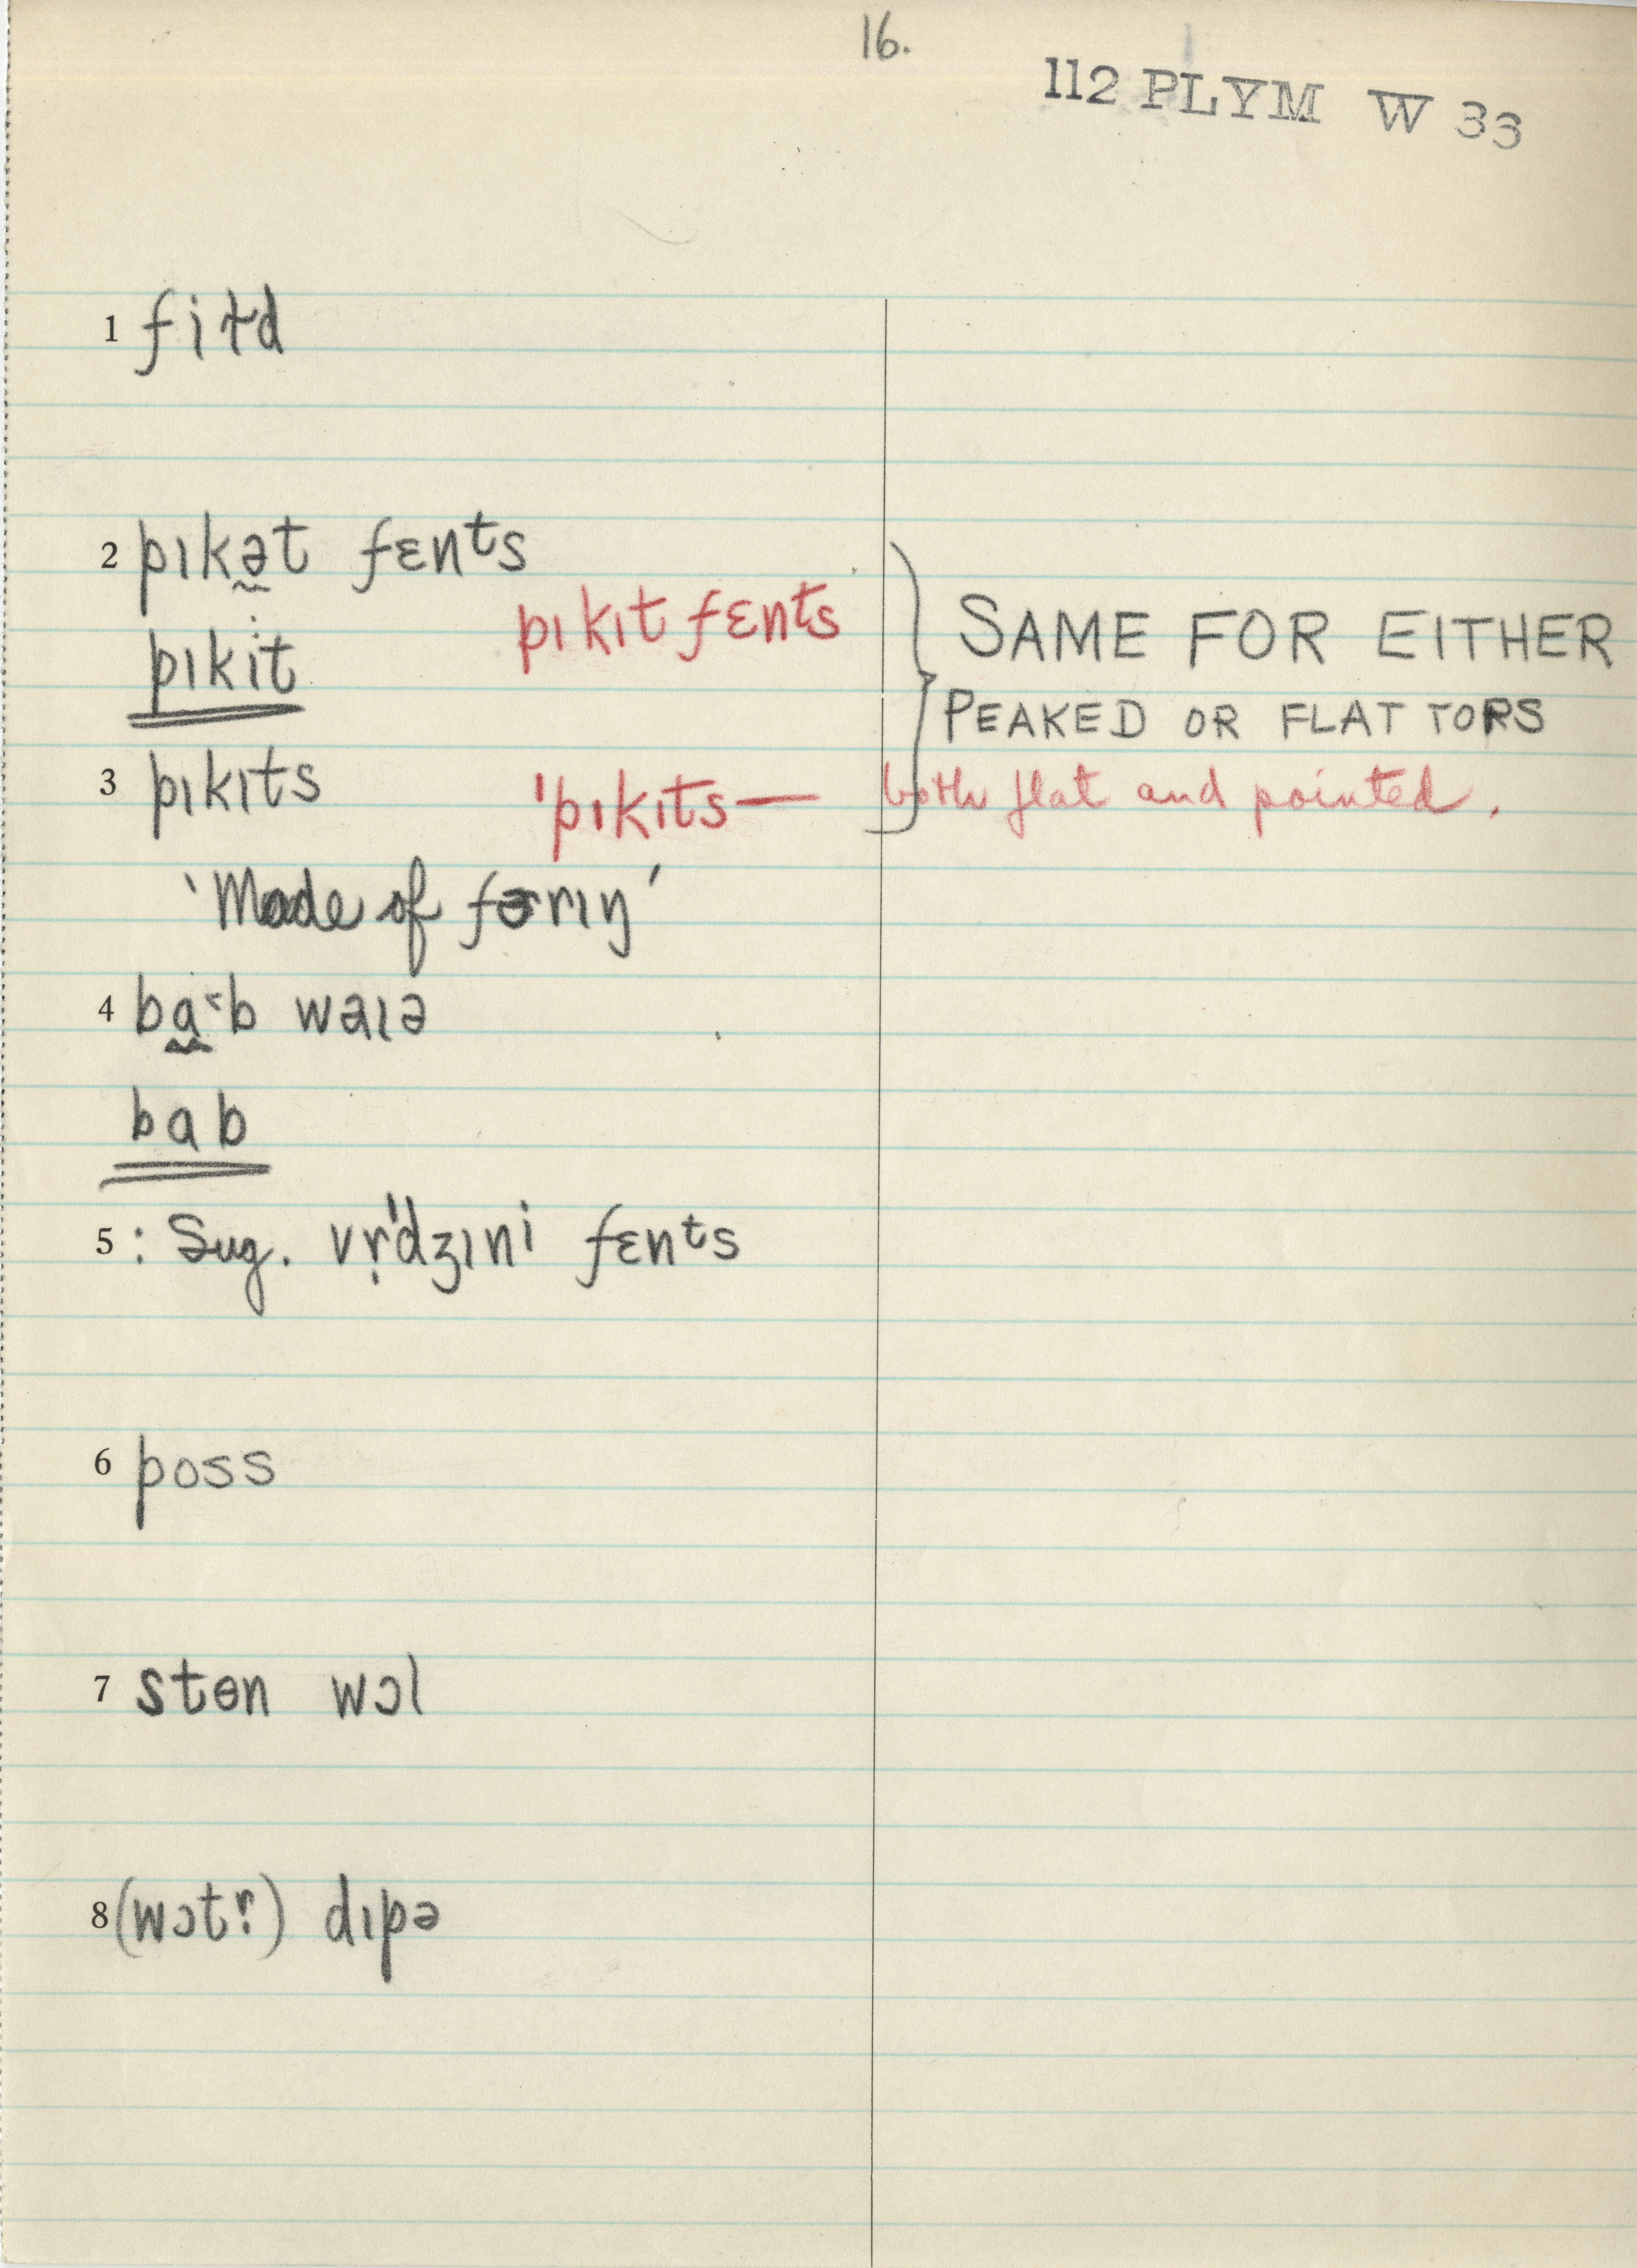 16.
112 PLYM W 33
1 fiɫd
2 pɪkə̰t fɛnᵗs
pɪkɪt fɛnᵗs
pɪkit
SAME FOR EITHER
PEAKED OR FLAT TOPS
3 pɪkɪts
ˈpɪkɪts— both flat and pointed.
'Made of fɜrɪŋ'
4 ba̰˂b waɪə
bab
5 : Sug. vṛˈdʒɪni fɛnᵗs
6 poss
7 stɵn wɔl
8 (wɔtṛ) dɪpə